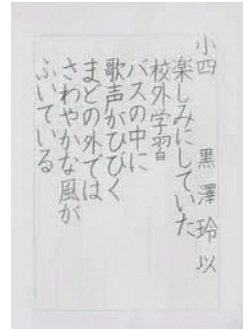 小四　黒澤玲以
楽しみにしていた
校外学習
バスの中に
歌声がひびく
まどの外では
さわやかな風が
ふいている